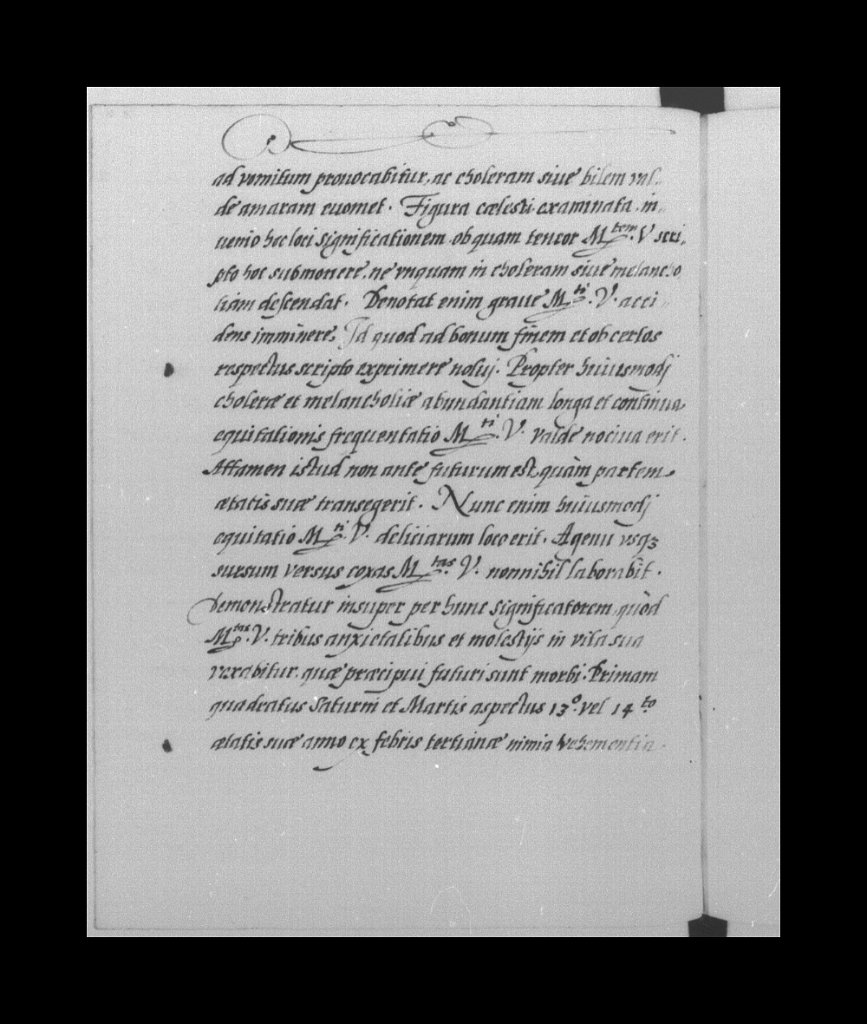 ad vomitum prouocabitur, ac choleram siue bilem val„
de amaram euomet. Figura cælesti examinata in„
uenio hoc loci significationem ob quam teneor M.tem V. scri„
pto hoc submonere, ne vnquam in choleram siue melancho
liam descendat. Denotat enim graue M.ti V. acci„
dens imminere, Id quod ad bonum finem et ob certos
respectus scripto exprimere nolui. Propter huiusmodj
choleræ et melancholiæ abundantiam longa et continua
equitationis frequentatio M.ti V. valde nociua erit.
Attamen istud non ante futurum est, quàm partem
ætatis suæ transegerit. Nunc enim huiusmodj
equitatio M.ti V. deliciarum loco erit. A genu vsqꝫ
sursum versus coxas M.tas V. nonnihil laborabit.
Demonstratur insuper per hunc significatorem, quòd
M.tas V. tribus anxietatibus et molestijs in vita sua
vexabitur, quæ præcipui futuri sunt morbi. Primam
quadratus Saturni et Martis aspectus 13.º vel 14.to
ætatis suæ anno ex febris tertianæ nimia vehementia